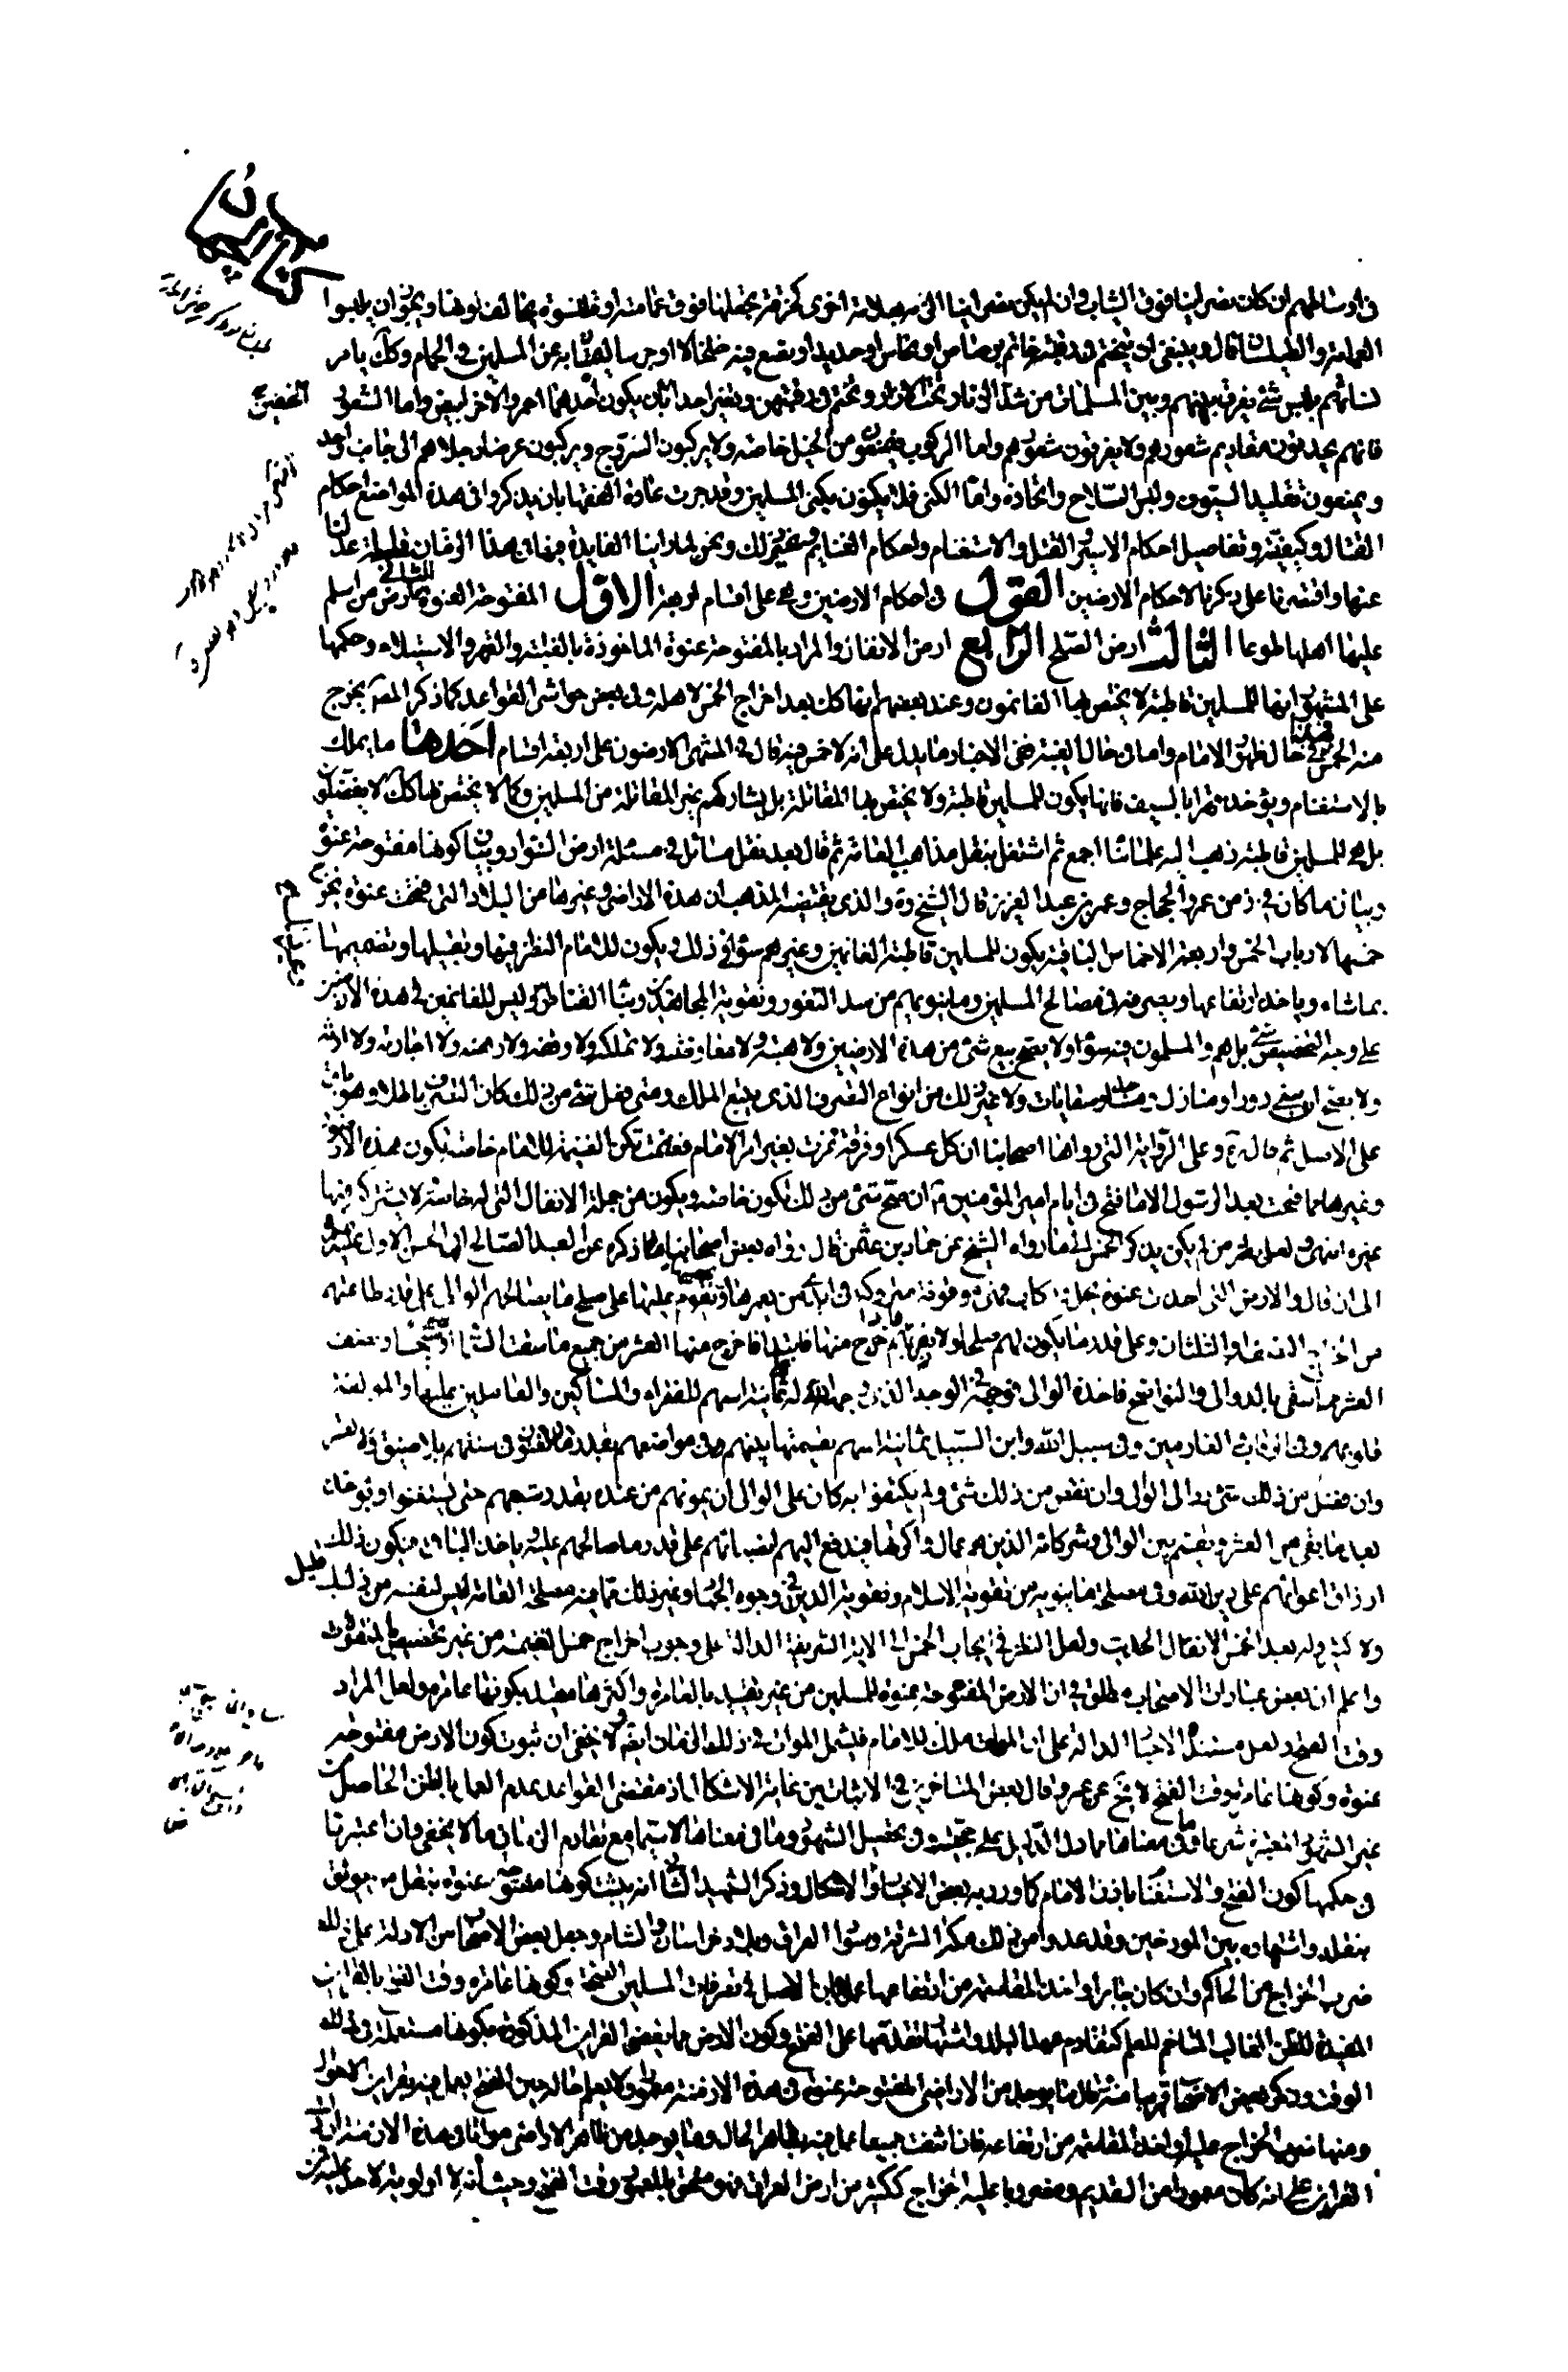 في اوساطهم ان كان نصرانيا فوق الثياب وان لم يكن نصرانيا القى خرقة اخرى كخرقة يجعلها فوق عمامته او قلنسوة يخالف لونها ويجوز ان يلبسوا
العمامة والطيلسان قال وينبغي ان يتختم في رقبته خاتم رصاص او نحاس او حديد او يضع فيه خلخالا او جرسا ليمتاز به عن المسلمين في الحمام وكك يامر
نسائهم بلبس شئ يفرق بينهم وبين المسلمات من شد الزنار تحت الازار وتختم في رقبتهن وتغير احد الخفين بان يكون احدهما احمر والاخر ابيض واما الشعور
فانهم يحذفون مقاديم شعورهم ولا يفرقون شعورهم واما الركوب فيمنعون من الخيل خاصة ولا يركبون السروج ويركبون عرضا رجلاهم الى جانب واحد
ويمنعون تقليد السيوف ولبس السلاح واتخاذه واما الكنى فلا يكنون بكنى المسلمين وقد جرت عادة الفقهاء بان يذكروا في هذه المواضع احكام
القتال وكيفيته وتفاصيل احكام الاسير والقتل والاستغنام واحكام الغنايم وغير ذلك ونحن لما راينا الفايدة فيها في هذا الزمان قليلة عدلنا
عنها واقتصرنا على ذكر الاحكام الارضين القول في احكام الارضين وهي على اقسام اربعة الاول المفتوحة العنوة الثاني ارض من اسلم
عليها اهلها طوعا الثالث ارض الصلح الرابع ارض الانفال والمراد بالمفتوحة عنوة الماخوذة بالغلبة والقهر والاستيلاء وحكمها
على المشهور انها للمسلمين قاطبة لا يختص بها الغانمون وعند بعضهم انها كك بعد اخراج الخمس لاهله وفي بعض حواشي القواعد كما ذكر المص يخرج
منه الخمس هذا في حال ظهور الامام واما في حال الغيبة ففي الاخبار ما يدل على انه لا خمس فيه قال في المنتهى الارضون على اربعة اقسام احدها ما يملك
بالاستغنام ويؤخذ قهرا بالسيف فانها يكون للمسلمين قاطبة ولا يختص بها المقاتلة بل يشاركهم غير المقاتلة من المسلمين وكما لا يختص بها كك لا يفضلون
بل هي للمسلمين قاطبة ذهب اليه علمائنا اجمع ثم اشتغل بنقل مذاهب العامة ثم قال بعد نقل مسائل في مسئلة ارض السواد وبيان كونها مفتوحة عنوة
وبيان ما كان في زمن عمر والحجاج وعمر بن عبد العزيز قال الشيخ ره والذي يقتضيه المذهب ان هذه الاراضي وغيرها من البلاد التي فتحت عنوة يخرج
خمسها لارباب الخمس واربعة الاخماس الباقية يكون للمسلمين قاطبة الغانمين وغيرهم سواء في ذلك ويكون للامام النظر فيها وتقبيلها وتضمينها
بما شاء وياخذ ارتفاعها ويصرفه في مصالح المسلمين وما ينوبهم من سد الثغور وتقوية المجاهدين وبناء القناطر وليس للغانمين في هذه الارضين
على وجه التخصيص شئ بل هم والمسلمون فيه سواء ولا يصح بيع شئ من هذه الارضين ولا هبته ولا معاوضته ولا تملكه ولا وقفه ولا رهنه ولا اجارته ولا ارثه
ولا يصح ان يبنى دورا ومنازل ومساجد وسقايات ولا غير ذلك من انواع التصرف الذي يتبع الملك ومتى فعل شئ من ذلك كان التصرف باطلا وهو باق
على الاصل ثم قال ره وعلى الرواية التي رواها اصحابنا ان كل عسكر او فرقة غزت بغير امر الامام فغنمت تكون الغنيمة للامام خاصة تكون هذه الارضون
وغيرها مما فتحت بعد الرسول الا ما فتح في ايام امير المؤمنين ع ان صح شئ من ذلك تكون خاصة ويكون من جملة الانفال التي له خاصة لا يشركه فيها
غيره انتهى ولعل نظر من لم يكن يذكر الخمس الى ما رواه الشيخ عن حماد بن عثمن قال رواه بعض اصحابنا ذكره عن العبد الصالح ابي الحسن الاول عليه السلام
الى ان قال والارض التي اخذت عنوة بخيل وركاب فهي موقوفة متروكة في ايدي من يعمرها ويقوم عليها على صلح ما يصالحهم الوالي على قدر طاقتهم
من الخراج النصف او الثلث او الثلثان وعلى قدر ما يكون لهم صلحا ولا يضر بهم فاذا خرج منها فابتدأ فاخرج منها العشر من جميع ما سقت السماء او سقي سيحا ونصف
العشر مما سقي بالدوالي والنواضح فاخذه الوالي فوجهه في الوجه الذي وجهه الله له ثمانية اسهم للفقراء والمساكين والعاملين عليها والمولفة
قلوبهم وفي الرقاب الغارمين وفي سبيل الله وابن السبيل ثمانية اسهم يقسمها بينهم في مواضعهم بقدر ما يستغنون في سنتهم بلا ضيق ولا تقتير
وان فضل من ذلك شئ رد الى الوالي وان نقص من ذلك شئ ولم يكتفوا به كان على الوالي ان يمونهم من عنده بقدر شبعهم حتى يستغنوا ويؤخذ
بعد ما بقي من العشر ويقسم بين الوالي وشركائه الذين هم عمال الارض واكرتها فيدفع اليهم انصبائهم على قدر ما صالحهم عليه وياخذ الباقي فيكون ذلك
ارزاق اعوانهم على دين الله وفي مصلحة ما ينوبه من تقوية الاسلام وتقوية الدين في وجوه الجهاد وغير ذلك مما فيه مصلحة العامة ليس لنفسه من ذلك قليل
ولا كثير وله بعد الخمس الانفال الحديث ولعل النظر في ايجاب الخمس الى الاية الشريفة الدالة على وجوب اخراج خمس الغنيمة من غير تخصيص بالمنقولات
واعلم ان بعض عبارات الاصحاب مطلق في ان الارض المفتوحة عنوة للمسلمين من غير تقييد بالعامرة واكثرها مقيد بكونها عامرة ولعل المراد
وقت الفتح ولعل مستنده الاخبار الدالة على ان الموات ملك للامام فليشمل الموات في ذلك الزمان ايضا ولا يخفى ان ثبوت كون الارض مفتوحة
عنوة وكونها عامرة وقت الفتح لا يخ عن عسر وقال بعض المتاخرين في الاثبات بين غاية الاشكال اذ مقتضى القواعد عدم العمل بالظن الحاصل من
غير الشهرة المعتبرة شرعا وما في معناها مما دل الدليل على حجيته وفي تحصيل الشهرة وما في معناها لاسيما مع تقادم الزمان ما لا يخفى وان اعتبرنا
في حكمها كون الفتح والاستغنام باذن الامام كما ورد به بعض الاخبار زاد الاشكال وذكر الشهيد الثاني انه يثبت كونها مفتوحة عنوة بنقل من يوثق
بنقله واشتهاره بين المورخين وقد عدوا من ذلك مكة المشرفة وسواد العراق وبلاد خراسان والشام وجعل بعض الاصحاب من الادلة على ذلك
ضرب الخراج من الحاكم وان كان جائرا واخذ المقاسمة من ارتفاعها عملا بان الاصل في تصرفات المسلمين الصحة وكونها عامرة وقت الفتح بالقراين
المفيدة للظن الغالب المتاخم للعلم كتقادم عهد البلد واشتهار تقدمها على الفتح وكون الارض مما يقضي القراين المذكورة بكونها مستعملة في ذلك
الوقت وذكر بعض الاصحاب قريبا منه قال ما يوجد من الاراضي المفتوحة عنوة في هذه الازمنة معمورا ولا يعلم حاله حين الفتح يعمل فيه بقراين الاحوال
ومنها ضرب الخراج عليه او اخذ المقاسمة من ارتفاعه فان انتفت جميعا عمل فيه بظاهر الحال وما يوجد من ظاهر الاراضي مواتا في هذه الازمنة ان دلت
القراين على انه كان معمورا من القديم ومضروبا عليه الخراج ككثير من ارض العراق فهو ملحق بالمعمور وقت الفتح وحيث انه لا اولوية لاحد عليه فمن